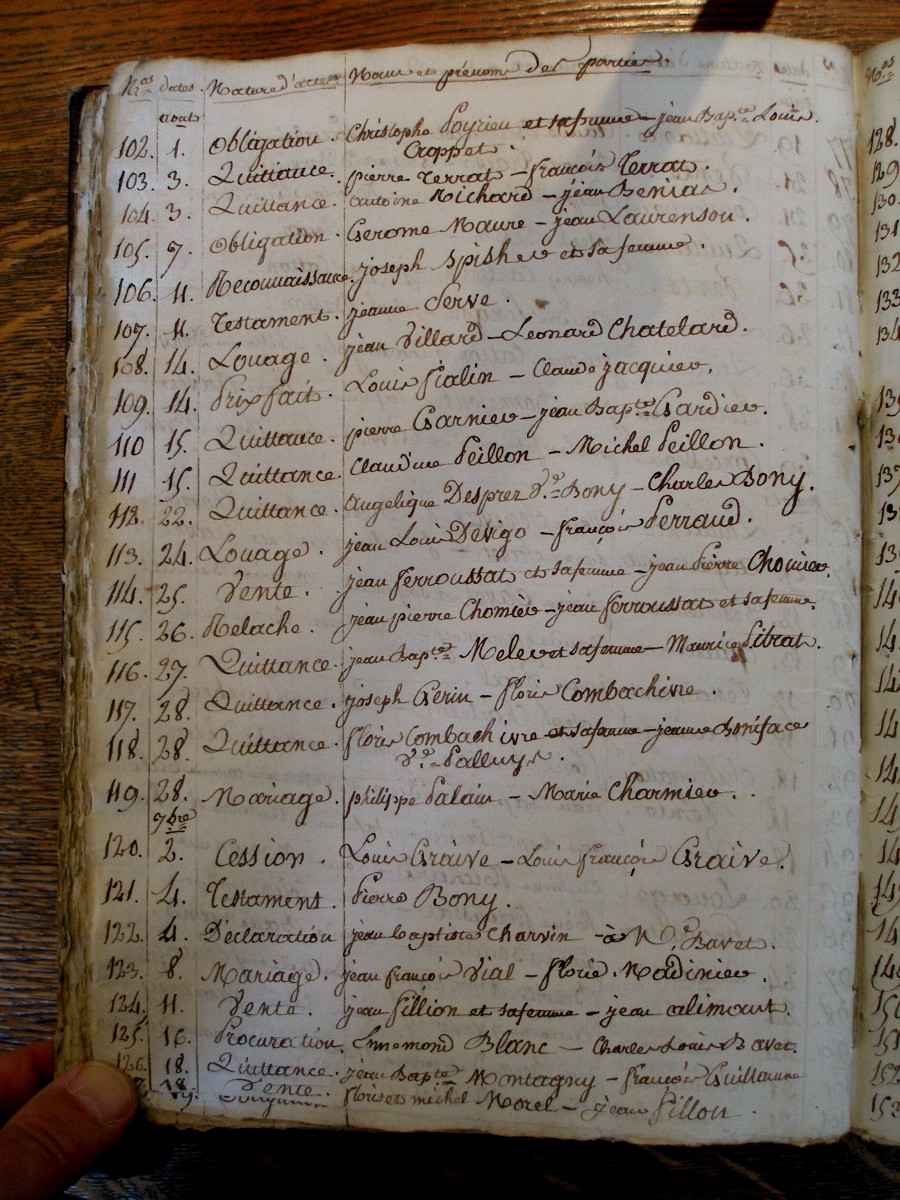 Nos dates. Nature d'actes Noms et prénoms des parties.
aout
102. 1. Obligation. Christophe Poyrieu et sa femme – jean Bapte. Louis
Croppet.
103. 3. Quittance. pierre Terrat – françois Terrat.
104. 3. Quittance. antoine Richard – jean Benias.
105. 7. Obligation. Gerome Maure – jean Laurenson.
106. 11. Reconnaissance. joseph Spisher et sa femme.
107. 11. Testament. jeanne Serve.
108. 14. Louage. jean Villard – Leonard Chatelard.
109. 14. Prixfait. Louis fialin – Claude jacquier.
110 15. Quittance. pierre Garnier – jean Bapte. Gardier.
111 15. Quittance. Claudine Peillon – Michel Peillon.
112. 22. Quittance. Angelique Desprez Ve. Bony – Charles Bony.
113. 24. Louage. jean Louis Devigo – françois Perraud.
114. 25. Vente. jean ferroussat et sa femme – jean Pierre Chomier.
115. 26. Relache. jean pierre Chomier – jean ferroussat et sa femme.
116. 27. Quittance. jean Bapte. Meler et sa femme – Maurice Pitrat.
117. 28. Quittance. joseph Gerin – floris Combachivre.
118. 28. Quittance. floris Combachivre et sa femme – jeanne Boniface
Ve. Palluys.
119. 28. Mariage. philippe Palain – Marie Charmier.
7bre
120. 2. Cession. Louis Graive – Louis françois Graive.
121. 4. Testament. Pierre Bony.
122. 4. Déclaration jean baptiste Charvin – à Bavet.
123. 8. Mariage. jean françois Vial – florie Madinier.
124. 11. Vente. jean fillion et sa femme – jean alimant.
125. 16. Procuration. Ennemond Blanc – Charles Louis Bavet.
126 18. Quittance. jean Bapte. Montagny – françois Guillaume
18. Vente. floris et michel Morel – jean fillon.
Nos
128.
129
130.
131
132
133
134